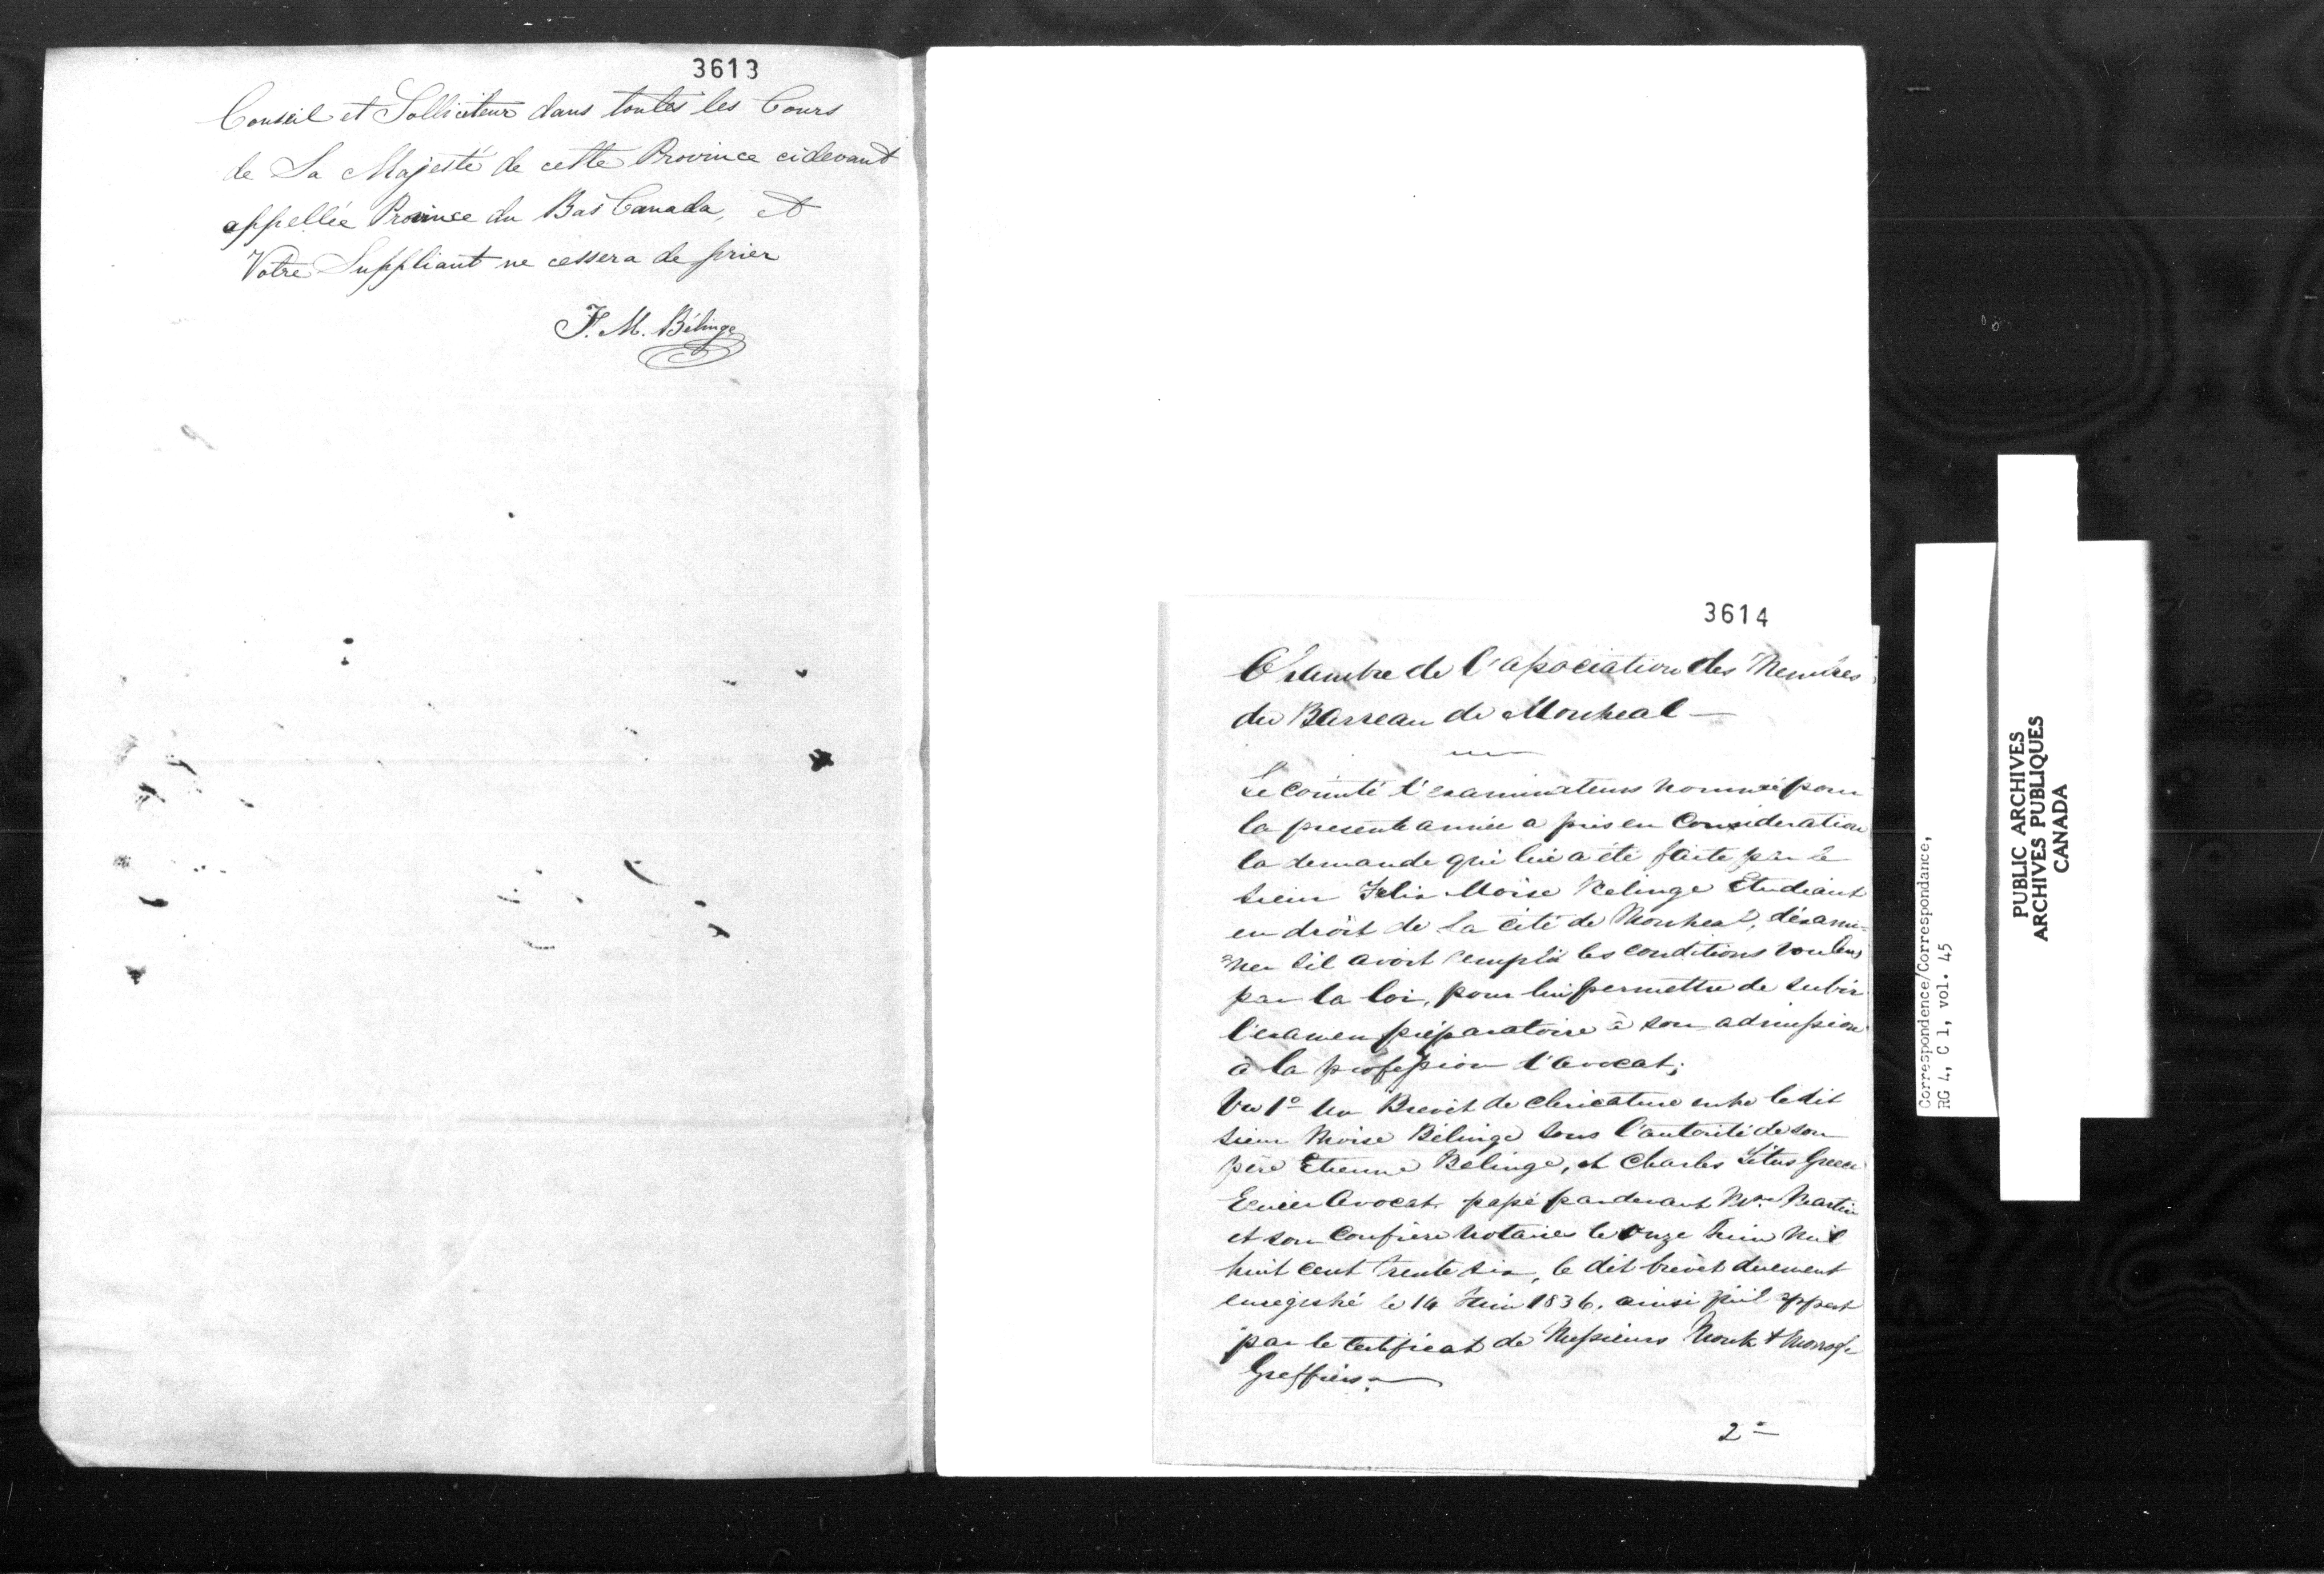 3613
Conseil et Solliciteur dans toutes les Cours
de Sa Majesté de cette Province cidevant
appellée Province du Bas Canada, et
Votre Suppliant ne cessera de prier
F. M. Bélinge
3614
Chambre de l'association des Membres
du Barreau de Montreal —
Le comité d'examinateurs nommé pour
la presente année a pris en Consideration
la demande qui lui a été faite par le
sieur Felix Moïse Belinge Etudiant
en droit de la cité de Montreal, d'exami-
ner s'il avoit rempli les conditions voulues
par la loi, pour lui permettre de subir
l'examen préparatoire à son admission
à la profession d'avocat;
Vu 1º Un Brevet de clericature entre le dit
sieur Moise Bélinge sous l'autorité de son
père Etienne Bélinge, et Charles Titus Greece
Ecuier Avocat passé pardevant Mtre Martin
et son Confrère Notaires le onze Juin mil
huit cent trente six, le dit brevet duement
enregistré le 14 Juin 1836, ainsi qu'il appert
par le certificat de Messieurs Monk & Morrogh
Greffiers.
2º
Correspondence/Correspondance,
RG 4, C 1, vol. 45
PUBLIC ARCHIVES
ARCHIVES PUBLIQUES
CANADA